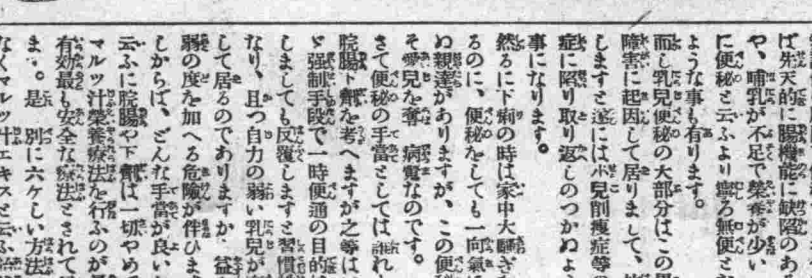 ば先天的に腸機能に缺陷のあ
や、哺乳が不足で榮養が少い
に便秘と云ふより寧ろ無便と
ような事も有ります。
而し乳兒便秘の大部分はこの
障害に起因して居りまして、
しますと遂には小兒削瘦症等の
症に陷り取り返しのつかぬよ
事になります。
然るに下痢の時は家中大騷ぎ
るのに、便秘をしても一向氣
ぬ親達がありますが、この便
そ愛兒を奪 病竟なのです。
さて便秘の手當としては誰れ
浣腸下劑を考へますが之等は
ゞ强制手段で一時便通の目的
しましても反覆しますと習慣
なり、且つ自力の弱い乳兒が
して居るのでありますか 益
弱の度を加へる危險が伴ひま
しからば、どんな手當が良い
云ふに浣腸や下劑は一切やめ
マルツ汁榮養療法を行ふのが
有効最も安全な療法とされて
ま 。是 別に六ケしい方法
なくマルツ汁エキスと云ふ